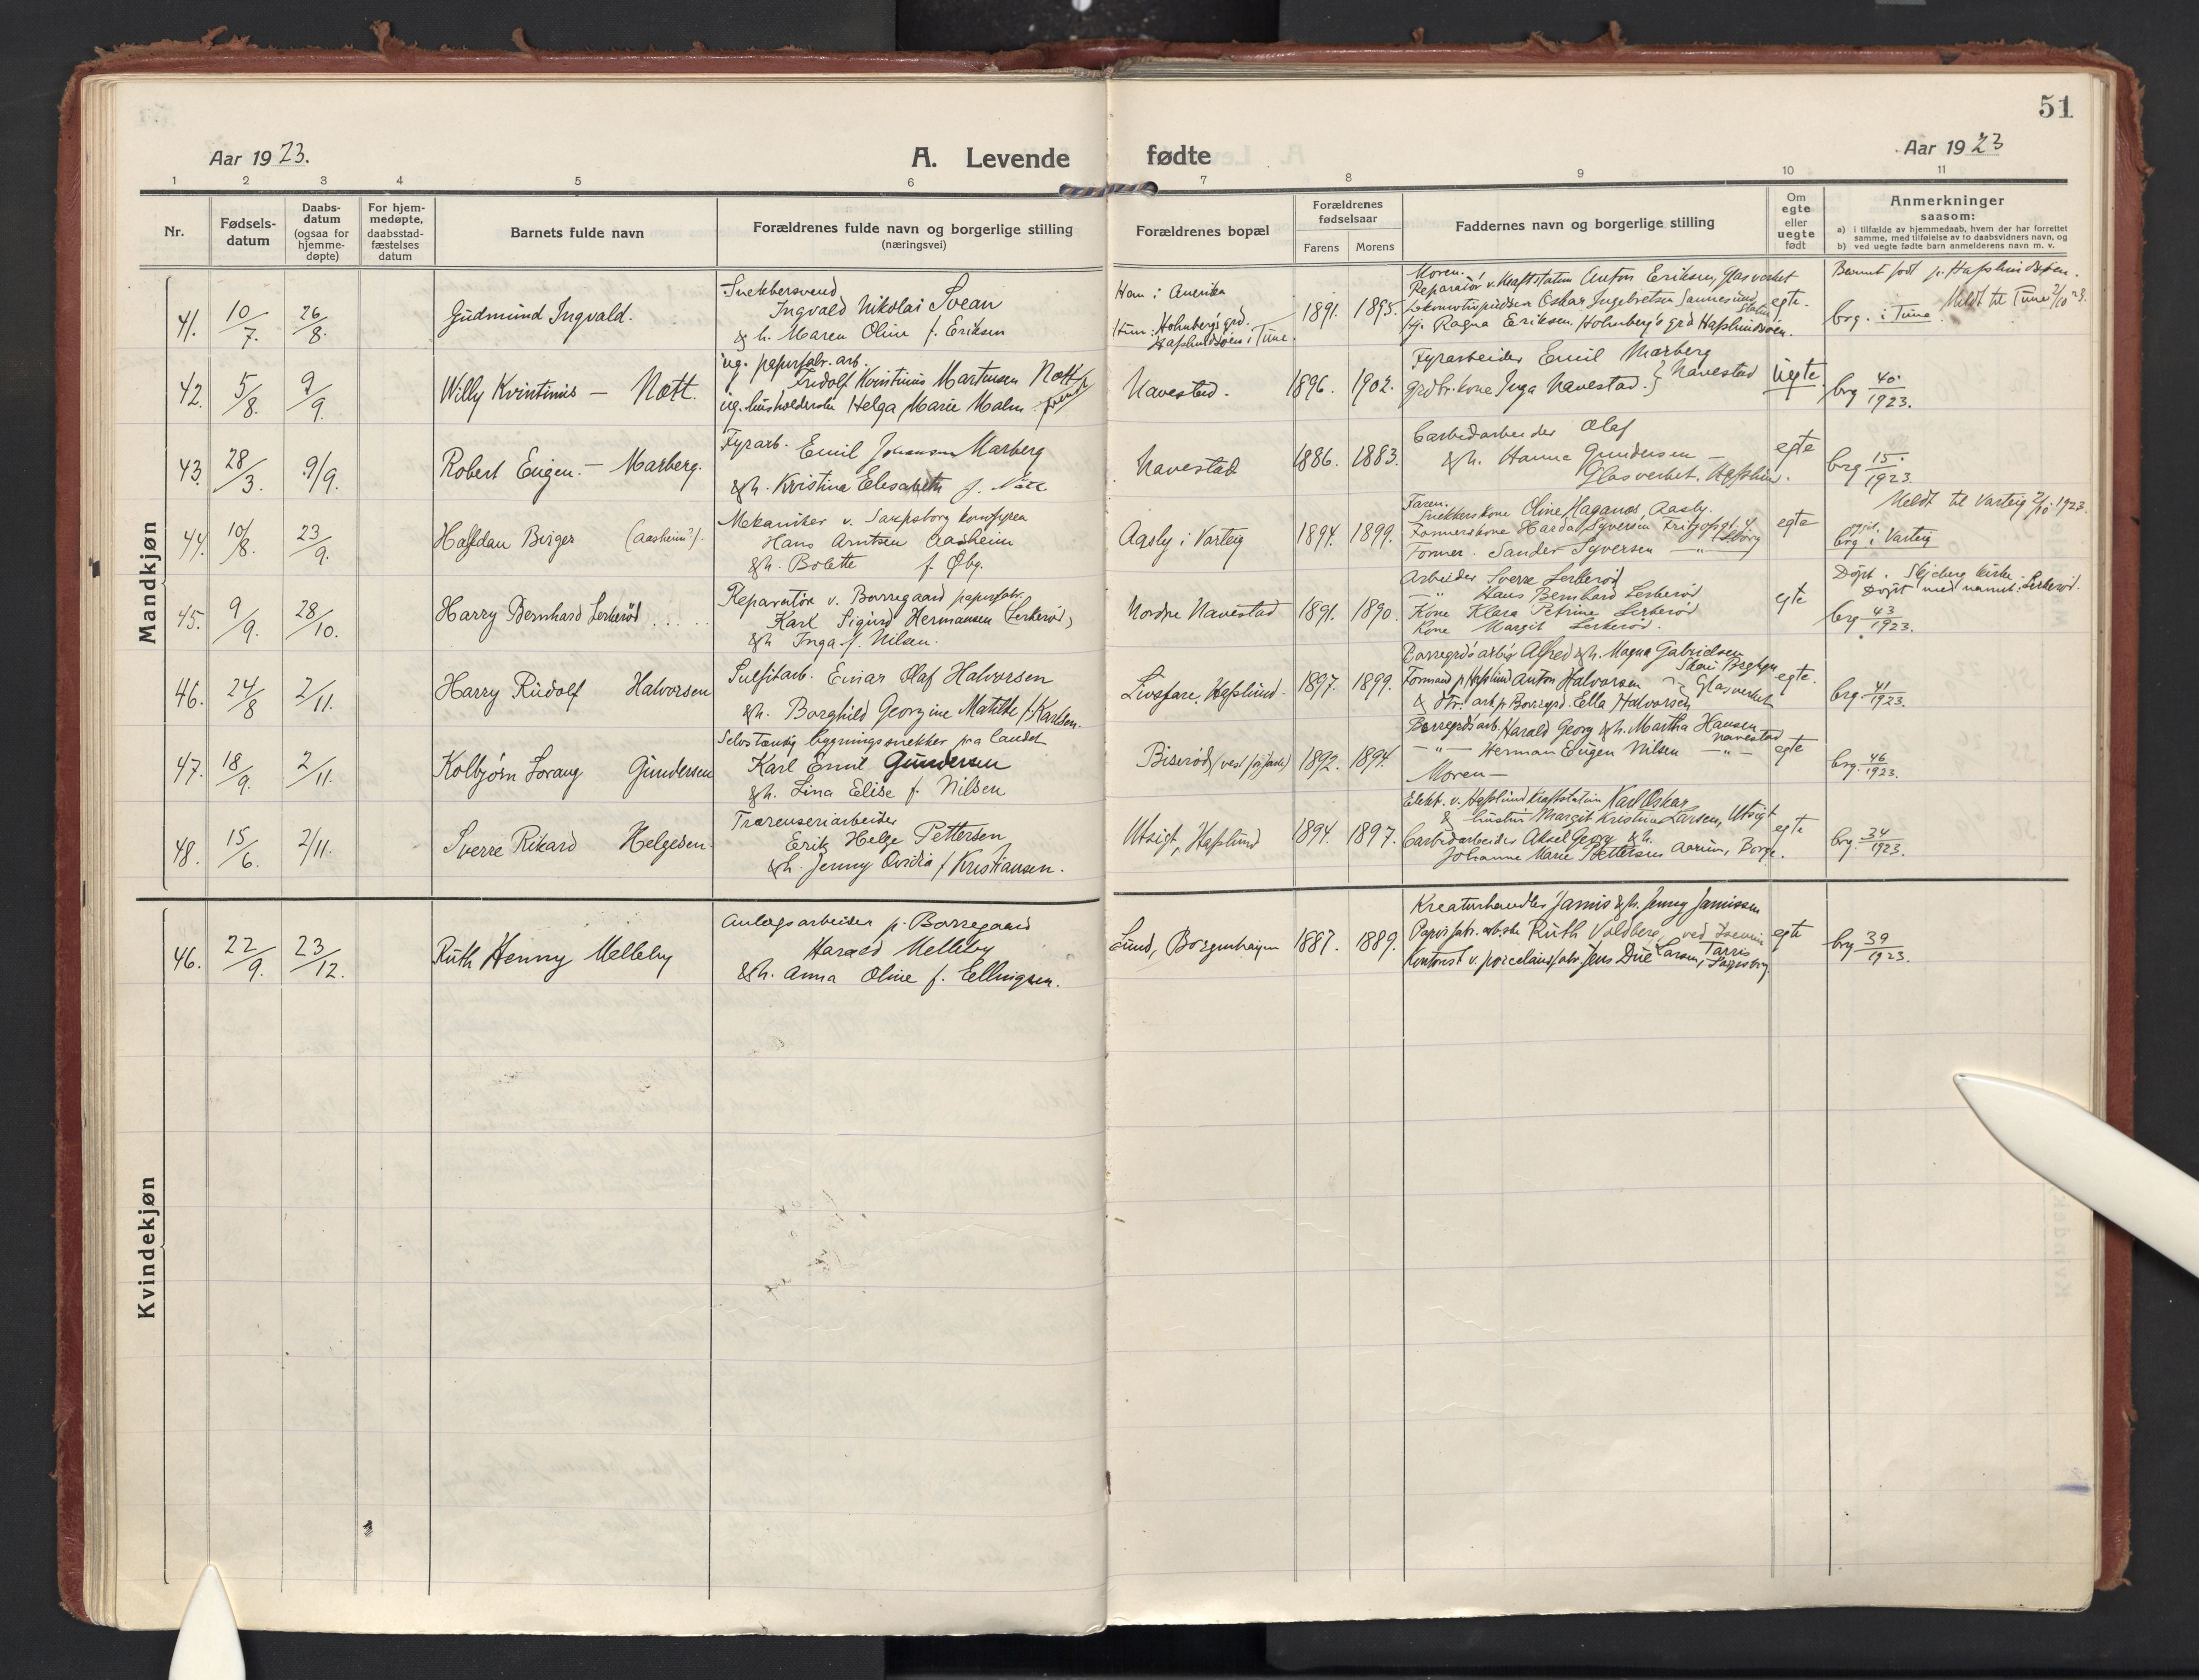 51
Aar 1923.
A. Levende fødte
Aar 1923
1 2 3 4 5 6 7 8 9 10 11
Nr.
Fødsels-
datum
Daabs-
datum
(ogsaa for
hjemme-
døpte)
For hjem-
medøpte,
daabsstad-
fæstelses
datum
Barnets fulde navn
Forældrenes fulde navn og borgerlige stilling
(næringsvei)
Forældrenes bopæl
Forældrenes
fødselsaar
Farens Morens
Faddernes navn og borgerlige stilling
Om
egte
eller
uegte
født
Anmerkninger
saasom:
a) i tilfælde av hjemmedaab, hvem der har forrettet
samme, med tilføielse av to daabsvidners navn, og
b) ved uegte fødte barn anmelderens navn m. v.
Mandkjøn
41. 10/7. 26/8. Gudmund Ingvald.
Snekkersvend
Ingvald Nikolai Svean
& h. Maren Oline f. Eriksen
Han i Amerika
Hun: Holmberg's grd.
Hafslundsøen i Tune.
1891. 1895.
Moren.
Reparatør v. Kraftstation Anton Eriksen, Glasverket
Oskar Ingebretsen Sannesund
Pj. Ragna Eriksen, Holmberg's grd Hafslundsøen.
egte.
Barnet født p. Hafslundsøen.
Meldt til Tune 2/10 23.
brg. i Tune.
42. 5/8. 9/9. Willy Kvintinus — Nott.
ug. papirfabr. arb.
Fridolf Kvintinus Martinsen Nott
ug. husholderske Helga Marie Malm
Navestad.
1896. 1902.
Fyrarbeider Emil Marberg
grdbr. kone Inga Navestad. } Navestad
uegte.
brg 40/1923.
43. 28/3. 9/9. Robert Eugen. — Marberg.
Fyrarb. Emil Johansen Marberg
& h. Kristina Elisabeth f. Nott
Navestad
1886. 1883.
Carbidarbeider Olaf
& h. Hanna Gundersen —
Glasverket. Hafslund.
egte
brg 15/1923.
44. 10/8. 23/9. Halfdan Birger (Aasheim?).
Mekaniker v. Sarpsborg
Hans Arntsen Aasheim
& h. Bolette f. Øbg.
Aasly i Varteig
1894. 1899.
Faren.
Snekkerskone Oline Haganes, Aasly.
Formerskone Harda Syversen
Former. Sander Syversen — " —
egte
Meldt til Varteig 2/10. 1923.
brg i Varteig
45. 9/9. 28/10. Harry Bernhard Lerkerød . . . .
Reparatør v. Borregaard papirfabr.
Karl Sigurd Hermansen (Lerkerød)
& h Inga f. Nilsen.
Nordre Navestad
1891. 1890.
Arbeider Sverre Lerkerød
— " Hans Bernhard Lerkerød
Kone Klara Petrine Lerkerød
Kone Margit Lerkerød.
egte
Døpt i Skjeberg kirke
Døpt med navnet: Lerkerød.
brg 43/1923.
46. 24/8 2/11. Harry Rudolf Halvorsen
Sulfitarb. Einar Olaf Halvorsen
& h. Borghild Georgine Matilde f. Karlsen.
Livsfare, Hafslund.
1897. 1899.
Borregrd's arb. Alfred & h. Magna Gabrielsen
Formand p. Hafslund Anton Halvorsen
& Fr. arb. p. Borregrd. Ella Halvorsen } Glasverket
egte.
brg. 41/1923.
47. 18/9. 2/11. Kolbjørn Lorang Gundersen
Selvstændig bygningssnekker paa landet
Karl Emil Gundersen
& h. Lina Elise f. Nilsen
Biserød (vest for jernb.)
1892. 1894.
Borregrd's arb. Harald Georg & h. Martha Hansen
Navestad
— " — Herman Eugen Nilsen — " —
Moren —
egte
brg. 46/1923.
48. 15/6. 2/11. Sverre Rikard Helgesen.
Trærenseriarbeider
Erik Helge Pettersen
& h. Jenny Ovidia f. Kristiansen.
Utsigt, Hafslund
1894. 1897.
Elekt. v. Hafslund Kraftstation Karl Oskar
& hustru Margit Kristine Larsen, Utsigt
Carbidarbeider Aksel Georg & h.
Johanne Marie Pettersen Aarum, Borge.
egte
brg. 34/1923.
Kvindekjøn
46. 22/9. 23/12. Ruth Henny Melleby
Anlægsarbeider p. Borregaard
Harald Melleby
& h. Anna Oline f. Ellingsen.
Lund, Borgenhaugen
1887. 1889.
Kreaturhandler Jamis & h. Jenny Jamissen
Papirfabr. arb.ske Ruth Voldberg,
Kontorist v. porcelainsfabr. Jens Due Larsen, Sarpsborg
egte
brg 39/1923.